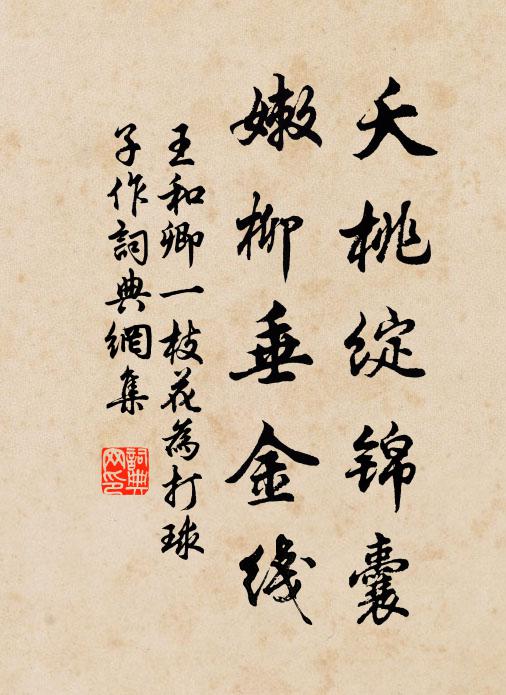 夭桃绽锦囊
嫩柳垂金线
王和卿一枝花為打球
子作詞典網集
詞典网印